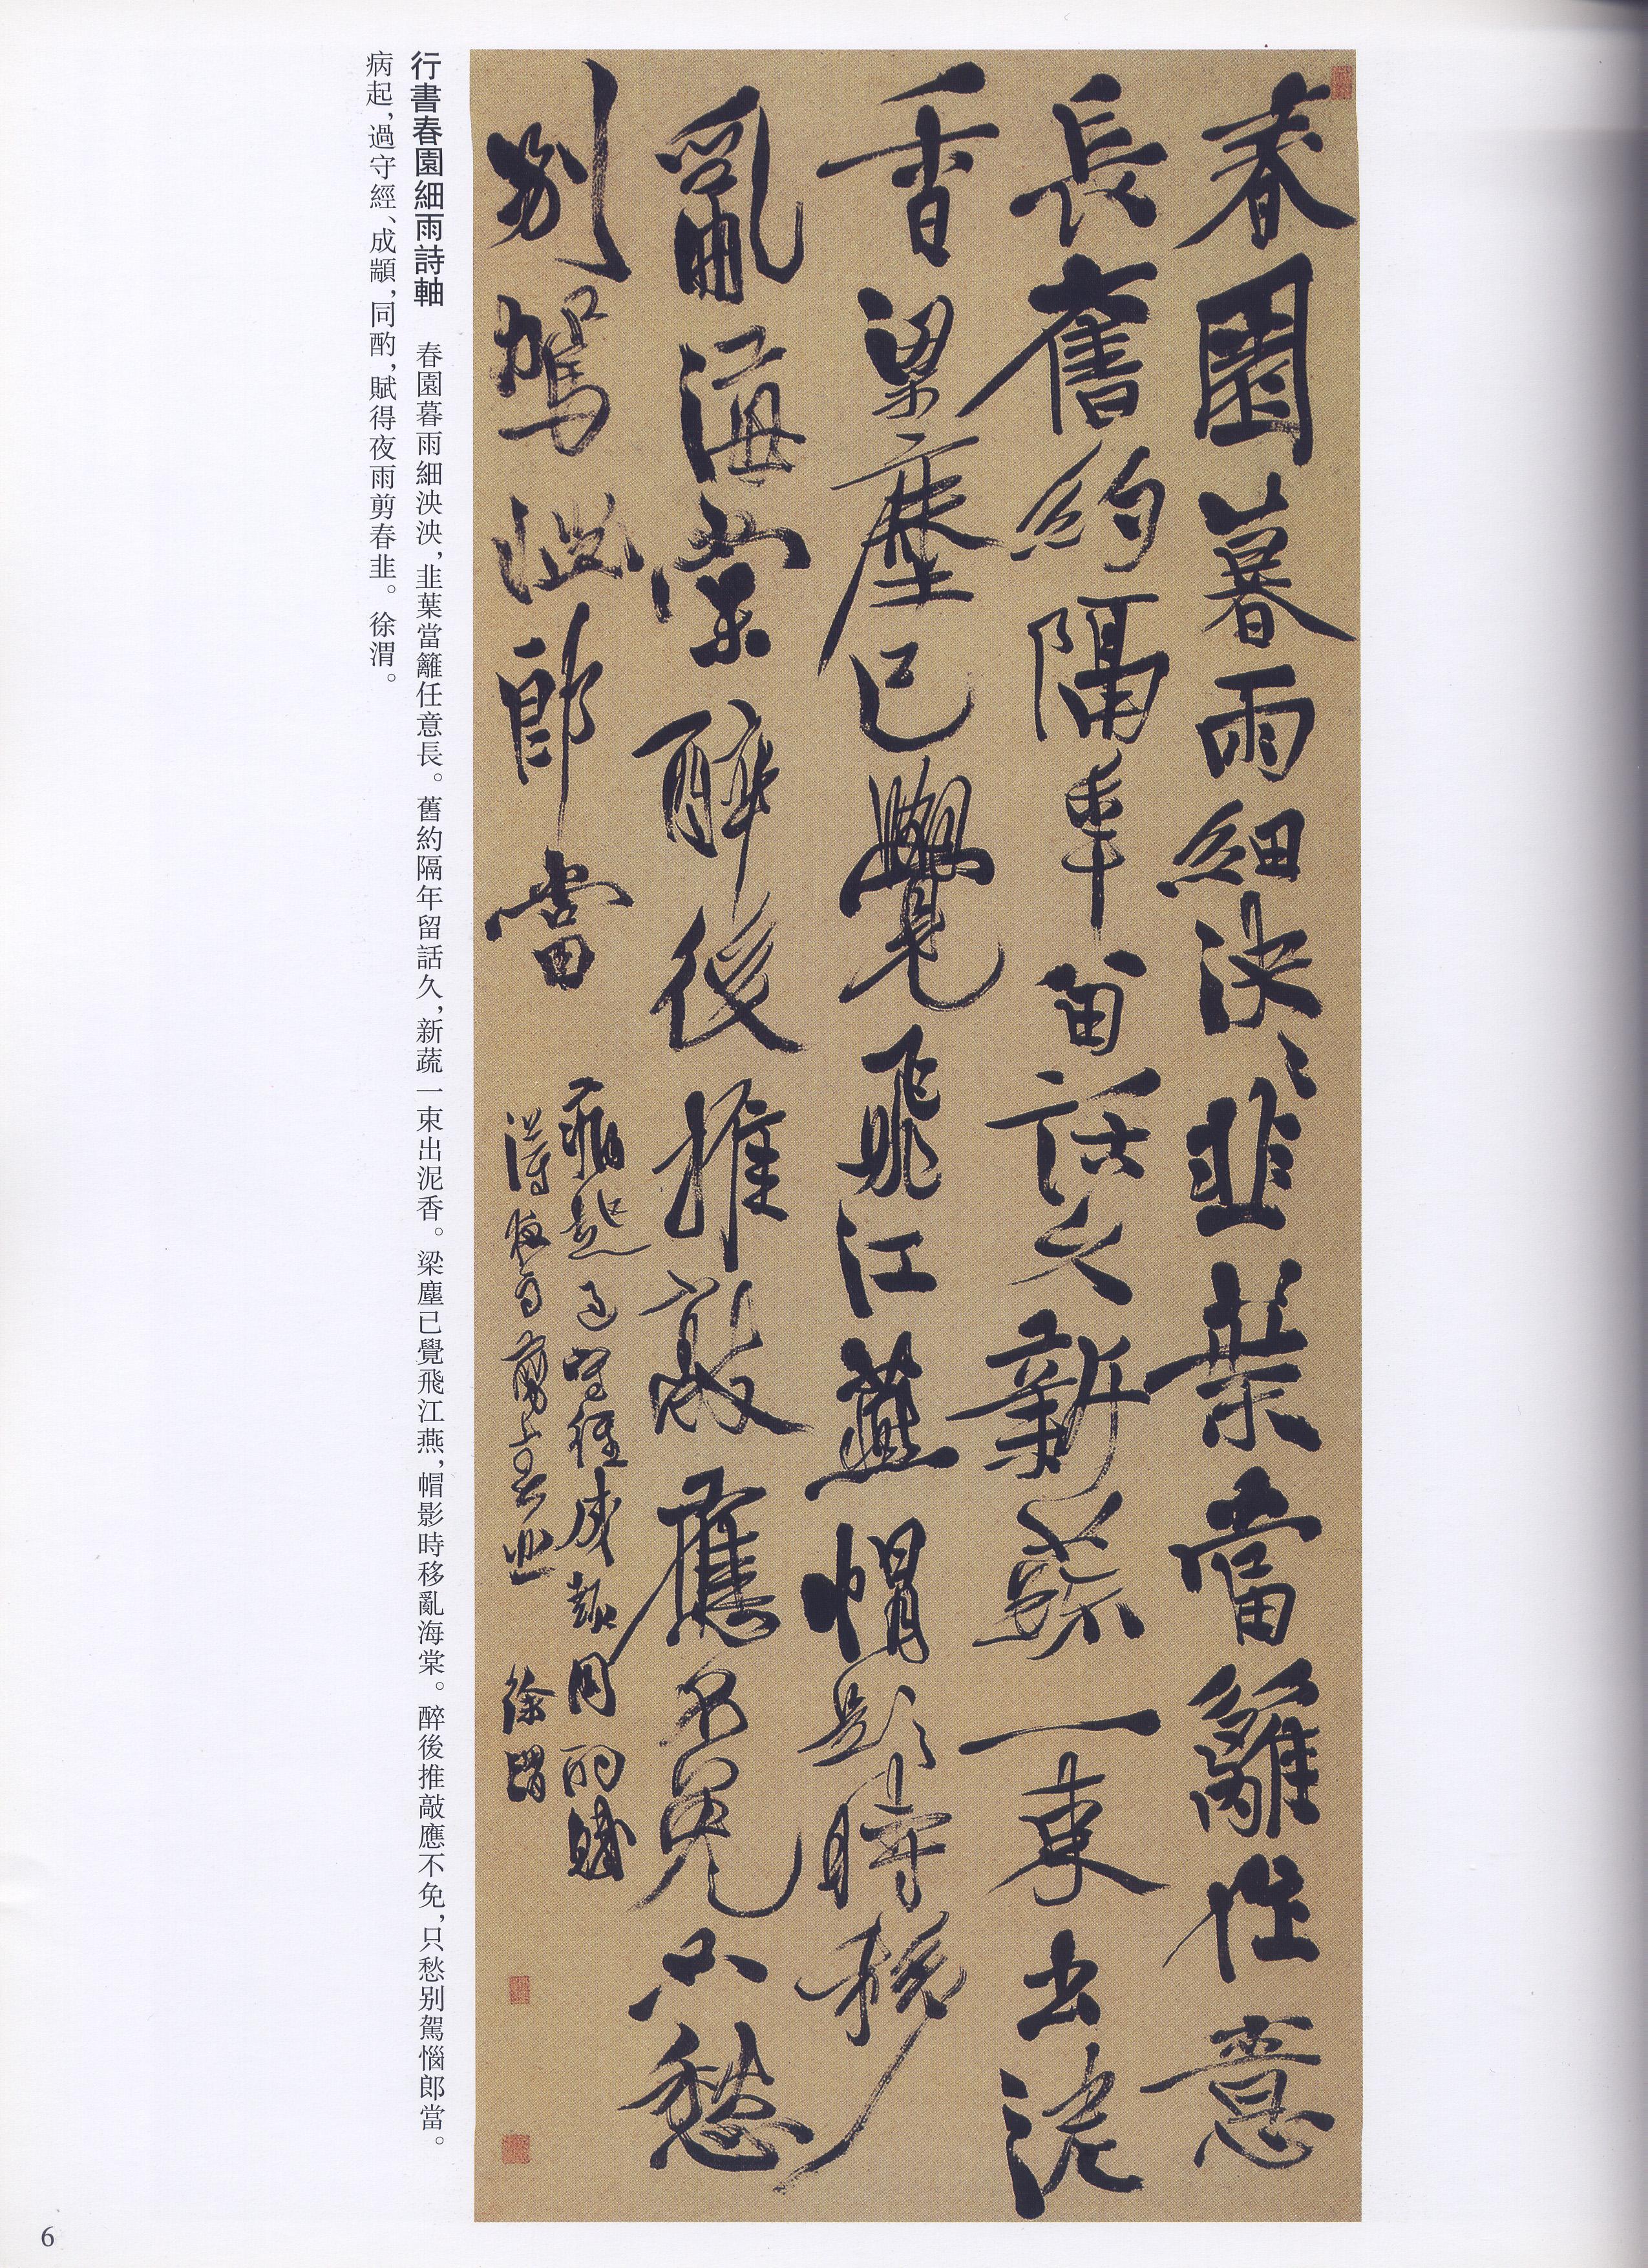 春園暮雨細泱〻韭葉當籬任意
長舊約隔年留話久新蔬一束出泥
香梁塵已覺飛江燕帽影時移
亂海棠醉後推敲應不免只愁
別駕惱郎當
病起過守經成顓同酌賦
得夜雨剪春韭 徐渭
行書春園細雨詩軸 春園暮雨細泱泱，韭葉當籬任意長。舊約隔年留話久，新蔬一束出泥香。梁塵已覺飛江燕，帽影時移亂海棠。醉後推敲應不免，只愁别駕惱郎當。
病起，過守經、成顓，同酌，賦得夜雨剪春韭。 徐渭。
6